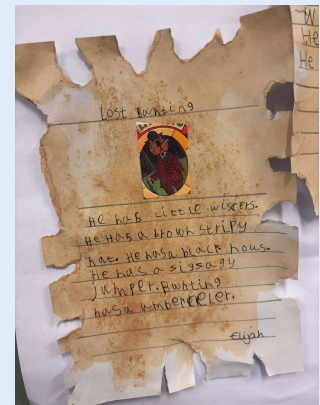 Lost Bunting
He has Little wisters.
He Has a brown stripy
hat. He has a black nous.
He has a sigsagy
jumper. Bunting
has a
Elijah
W
He
He